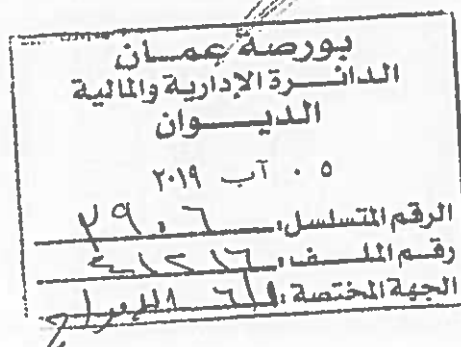 بورصة عمان
الدائرة الإدارية والمالية
الديوان
٠٥ آب ٢٠١٩
الرقم المتسلسل: ٣٩٠٦
رقم الملف: ٤١٢١٦
الجهة المختصة: